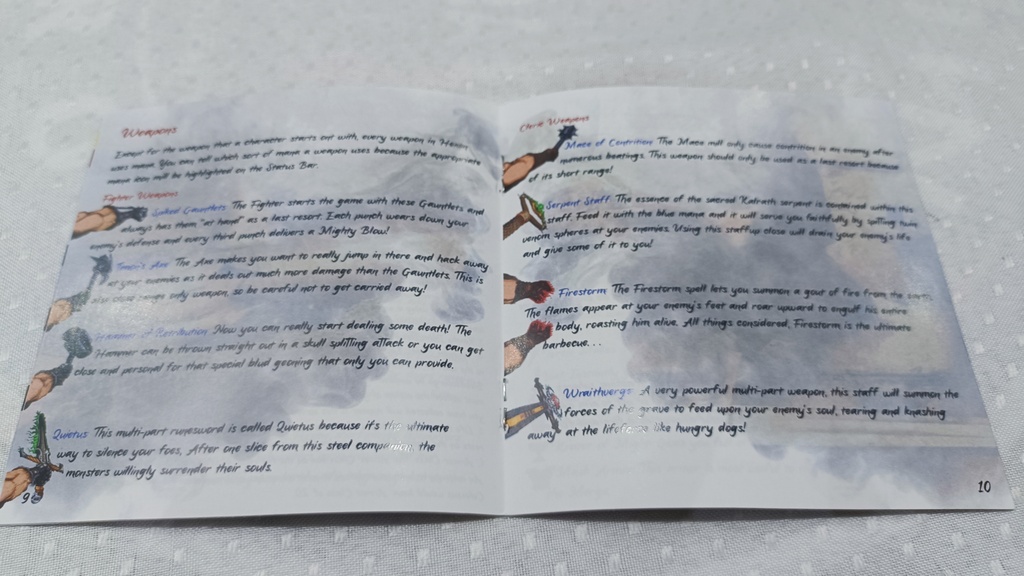 Weapons
Except for the weapon that a character starts out with, every weapon in Hexen
uses mana. You can tell which sort of mana a weapon uses because the appropriate
mana icon will be highlighted on the Status Bar.
Fighter Weapons
Spiked Gauntlets The Fighter starts the game with these Gauntlets and
always has them "at hand" as a last resort. Each punch wears down your
enemy's defense and every third punch delivers a Mighty Blow!
Timon's Axe The Axe makes you want to really jump in there and hack away
at your enemies as it deals out much more damage than the Gauntlets. This is
also close range only weapon, so be careful not to get carried away!
Hammer of Retribution Now you can really start dealing some death! The
Hammer can be thrown straight out in a skull splitting attack or you can get
close and personal for that special blud geoning that only you can provide.
Quietus This multi-part runesword is called Quietus because it's the ultimate
way to silence your foes. After one slice from this steel companion, the
monsters willingly surrender their souls.
9
Cleric Weapons
Mace of Contrition The Mace will only cause contrition in an enemy after
numerous beatings. This weapon should only be used as a last resort because
of its short range!
Serpent Staff The essence of the sacred serpent is contained within this
staff. Feed it with the blue mana and it will serve you faithfully by spitting twin
venom spheres at your enemies. Using this staffup close will drain your enemy's life
and give some of it to you!
Firestorm The Firestorm spell lets you summon a gout of fire from the earth.
The flames appear at your enemy's feet and roar upward to engulf his entire
body, roasting him alive. All things considered, Firestorm is the ultimate
barbecue. . .
Wraithverge A very powerful multi-part weapon, this staff will summon the
forces of the grave to feed upon your enemy's soul, tearing and knashing
away at the lifeforce like hungry dogs!
10